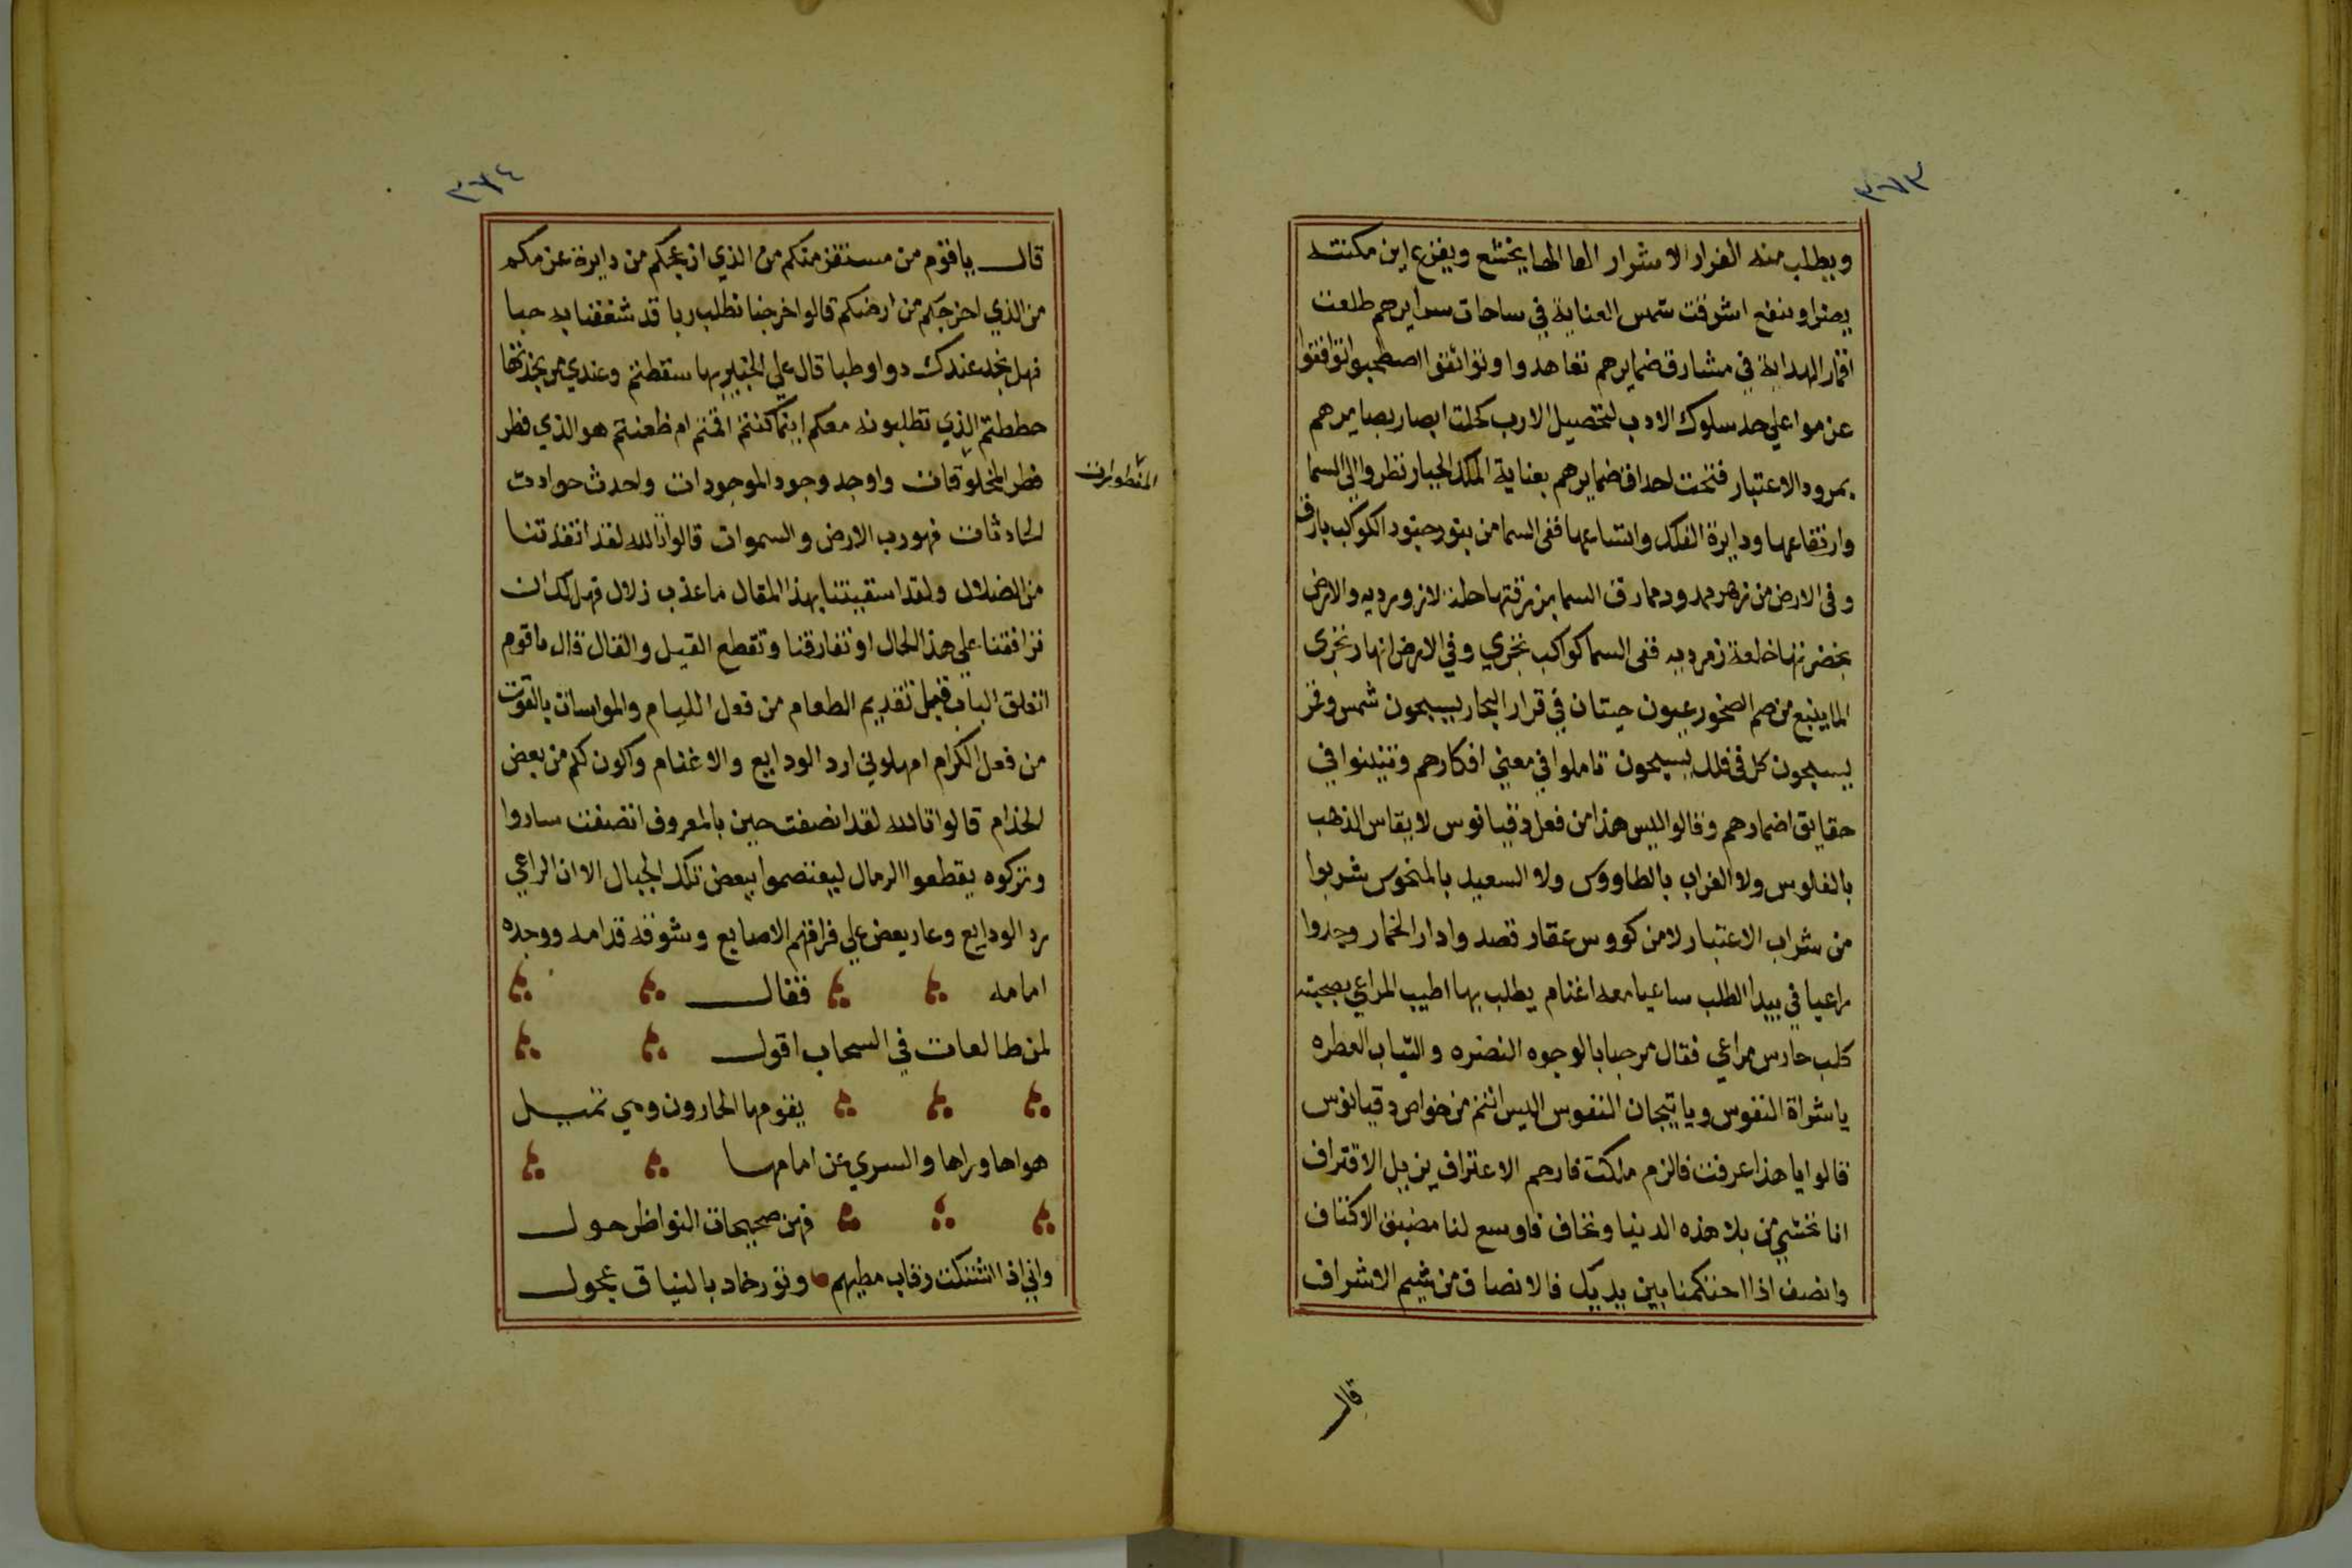 ٣٧٣
ويطلب منه الفرار الاشرار الها الها يخشع ويفزع اين مكنته
يضر او ينفع اشرقت شمس العناية في ساحات سرايرهم طلعت
اقمار الهداية في مشارق ضمايرهم تعاهدوا وتواثقوا اصطحبوا توافقوا
عزموا علي حد سلوك الادب لتحصيل الارب كحلت ابصار بصايرهم
بمرود الاعتبار فتحت احداق ضمايرهم بعناية الملك الجبار نظروا الي السما
وارتفاعها ودايرة الفلك واتساعها ففي السما من بنور جنود الكوكب بارق
وفي الارض من زهر ممدود ممارق السما من زرقتها لازورديه والارض
بخضرتها خلعة زمرديه ففي السما كواكب تجري وفي الارض انهار تجري
الما ينبع من صم الصخور عيون حيتان في قرار البحار يسبحون شمس وقمر
يسبحون كل في فلك يسبحون تاملوا في معني افكارهم وتبينوا في
حقايق اضمارهم وقالوا اليس هذا من فعل دقيانوس لا يقاس الذهب
بالفلوس ولا الغراب بالطاووس ولا السعيد بالمنحوس شربوا
من شراب الاعتبار لا من كووس عقار قصد وادار الخمار وجدوا
راعيا في بيدا الطلب ساعيا معه اغنام يطلب بها اطيب المراعي بصحبته
كلب حارس مراعي فقال مرحبا بالوجوه النضره والثياب العطره
ياشراة النفوس ويا تيجان النفوس اليس انتم من خواص دقيانوس
قالوا يا هذا عرفت فالزم ملكت فارحم الاعتراف يزيل الاقتراف
انا نخشي من بلا هذه الدنيا ونخاف فاوسع لنا مضيق الاكناف
وانصف اذا احتكمنا بين يديك فالانصاف من شيم الاشراف
قال
٣٧٤
قال ياقوم من مستفز منكم من الذي ازعجكم من دايرة عن مكم
من الذي اخرجكم من ارضكم قالوا خرجنا نطلب ربا قد شغفنا به حبا
فهل نجد عندك دوا وطبا قال علي الخبير بها سقطتم وعندي
حططتم الذي تطلبونه معكم اينما كنتم اقمتم ام ظعنتم هو الذي فطر
فطر المخلوقات واوجد وجود الموجودات واحدث حوادث
المفطورات
الحادثات فهو رب الارض والسموات قالوا تالله لقد انقذتنا
من الضلال ولقد اسقيتنا بهذا المقال ما عذب زلال فهل لك ان
ترافقنا علي هذا الحال او تفارقنا وتقطع القيل والقال قال ما قوم
انغلق الباب فيمل تقديم الطعام من فعل الليام والمواسات بالقوت
من فعل الكرام امهلوني ارد الودايع والاغنام واكون لكم من بعض
الخدام قالوا تالله لقد انصفت حين بالمعروف اتصفت ساروا
وتركوه يقطعوا الرمال ليعتصموا ببعض تلك الجبال الا ان الراعي
رد الودايع وعار يعض علي فراقهم الاصابع وشوقه قدامه ووجده
امامه فقال
لمن طالعات في السحاب اقول
يقومها الحادون وهي تميل
هواها وراها والسري عن امامها
فهن صحيحات النواظر حول
واني اذا اشتكت رقاب مطيهم وثور حاد بالنياق عجول